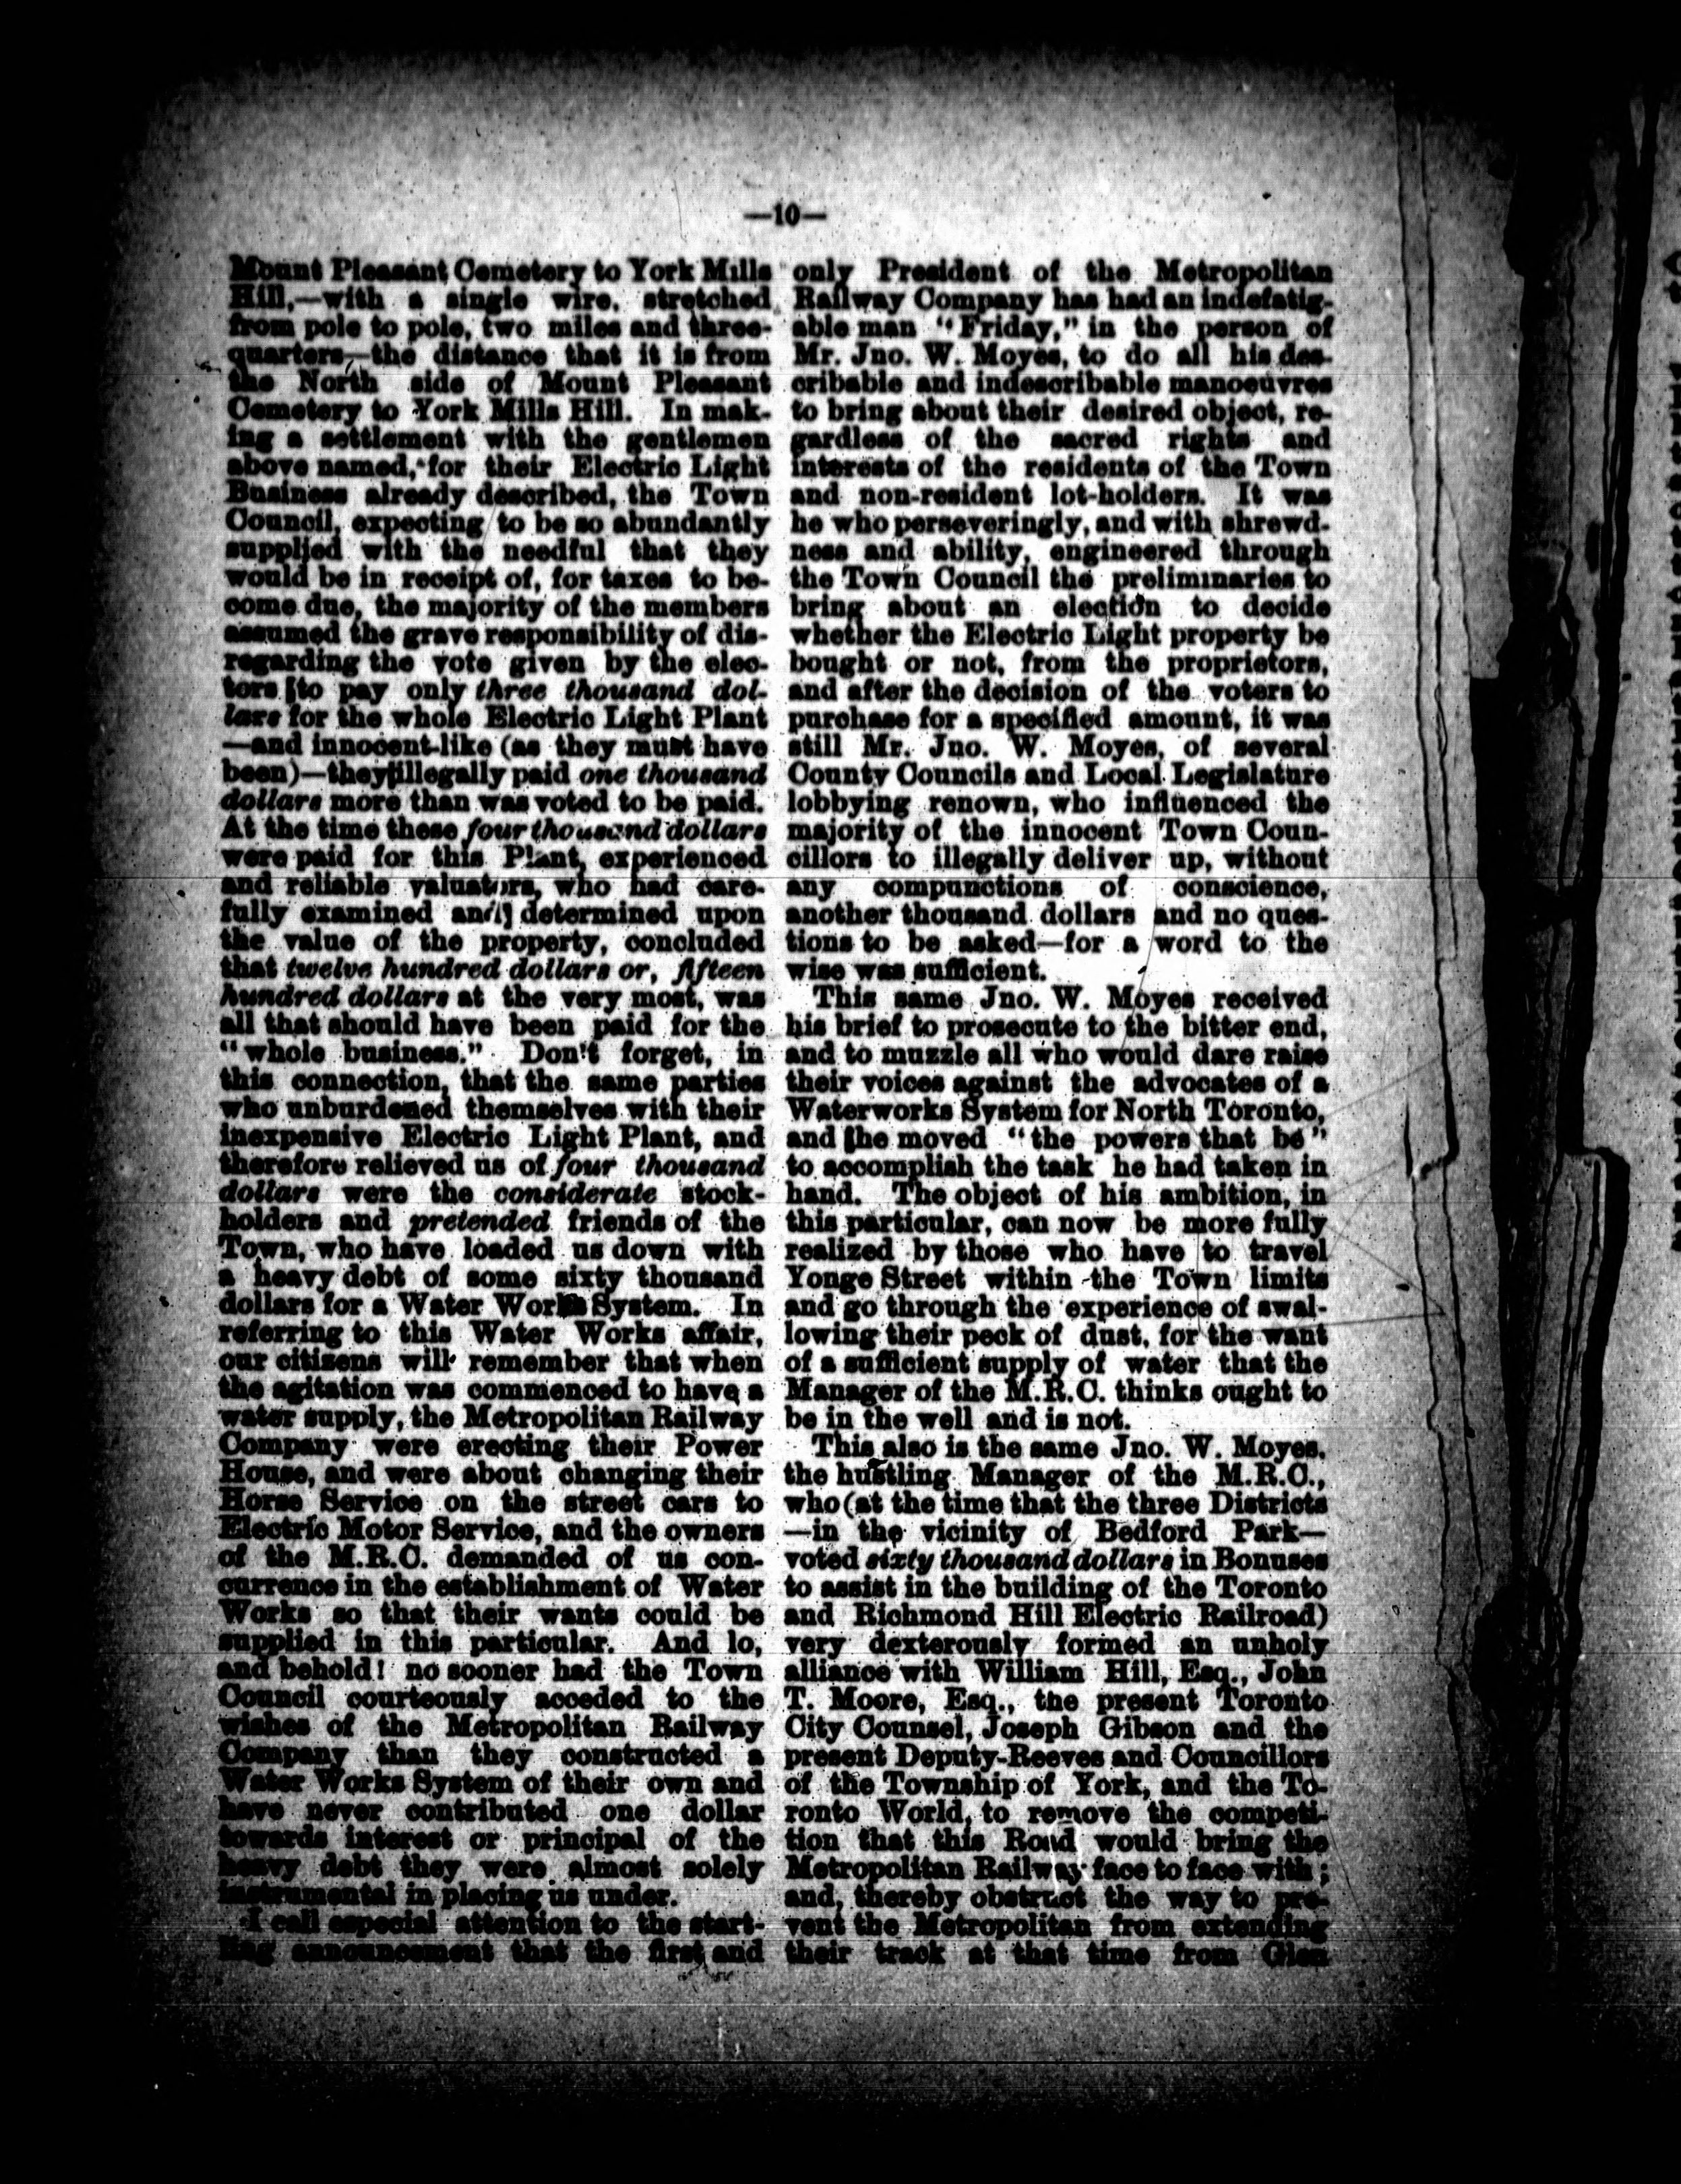 —10—
Mount Pleasant Cemetery to York Mills
Hill,—with a single wire, stretched
from pole to pole, two miles and three-
quarters—the distance that it is from
the North side of Mount Pleasant
Cemetery to York Mills Hill. In mak-
ing a settlement with the gentlemen
above named, for their Electric Light
Business already described, the Town
Council, expecting to be so abundantly
supplied with the needful that they
would be in receipt of, for taxes to be-
come due, the majority of the members
assumed the grave responsibility of dis-
regarding the vote given by the elec-
tors [to pay only three thousand dol-
lars for the whole Electric Light Plant
—and innocent-like (as they must have
been)—they illegally paid one thousand
dollars more than was voted to be paid.
At the time these four thousand dollars
were paid for this Plant, experienced
and reliable valuators, who had care-
fully examined and] determined upon
the value of the property, concluded
that twelve hundred dollars or, fifteen
hundred dollars at the very most, was
all that should have been paid for the
"whole business." Don't forget, in
this connection, that the same parties
who unburdened themselves with their
inexpensive Electric Light Plant, and
therefore relieved us of four thousand
dollars were the considerate stock-
holders and pretended friends of the
Town, who have loaded us down with
a heavy debt of some sixty thousand
dollars for a Water Works System. In
referring to this Water Works affair,
our citizens will remember that when
the agitation was commenced to have a
water supply, the Metropolitan Railway
Company were erecting their Power
House, and were about changing their
Horse Service on the street cars to
Electric Motor Service, and the owners
of the M.R.C. demanded of us con-
currence in the establishment of Water
Works so that their wants could be
supplied in this particular. And lo,
and behold! no sooner had the Town
Council courteously acceded to the
wishes of the Metropolitan Railway
Company than they constructed a
Water Works System of their own and
have never contributed one dollar
towards interest or principal of the
heavy debt they were almost solely
instrumental in placing us under.
I call especial attention to the start-
ling announcement that the first and
only President of the Metropolitan
Railway Company has had an indefatig-
able man "Friday," in the person of
Mr. Jno. W. Moyes, to do all his des-
cribable and indescribable manoeuvres
to bring about their desired object, re-
gardless of the sacred rights and
interests of the residents of the Town
and non-resident lot-holders. It was
he who perseveringly, and with shrewd-
ness and ability, engineered through
the Town Council the preliminaries to
bring about an election to decide
whether the Electric Light property be
bought or not, from the proprietors,
and after the decision of the voters to
purchase for a specified amount, it was
still Mr. Jno. W. Moyes, of several
County Councils and Local Legislature
lobbying renown, who influenced the
majority of the innocent Town Coun-
cillors to illegally deliver up, without
any compunctions of conscience,
another thousand dollars and no ques-
tions to be asked—for a word to the
wise was sufficient.
This same Jno. W. Moyes received
his brief to prosecute to the bitter end,
and to muzzle all who would dare raise
their voices against the advocates of a
Waterworks System for North Toronto,
and he moved "the powers that be"
to accomplish the task he had taken in
hand. The object of his ambition, in
this particular, can now be more fully
realized by those who have to travel
Yonge Street within the Town limits
and go through the experience of swal-
lowing their peck of dust, for the want
of a sufficient supply of water that the
Manager of the M.R.C. thinks ought to
be in the well and is not.
This also is the same Jno. W. Moyes,
the hustling Manager of the M.R.C.,
who (at the time that the three Districts
—in the vicinity of Bedford Park—
voted sixty thousand dollars in Bonuses
to assist in the building of the Toronto
and Richmond Hill Electric Railroad)
very dexterously formed an unholy
alliance with William Hill, Esq., John
T. Moore, Esq., the present Toronto
City Counsel, Joseph Gibson and the
present Deputy-Reeves and Councillors
of the Township of York, and the To-
ronto World, to remove the competi-
tion that this Road would bring the
Metropolitan Railway face to face with;
and, thereby obstruct the way to pre-
vent the Metropolitan from extending
their track at that time from Glen